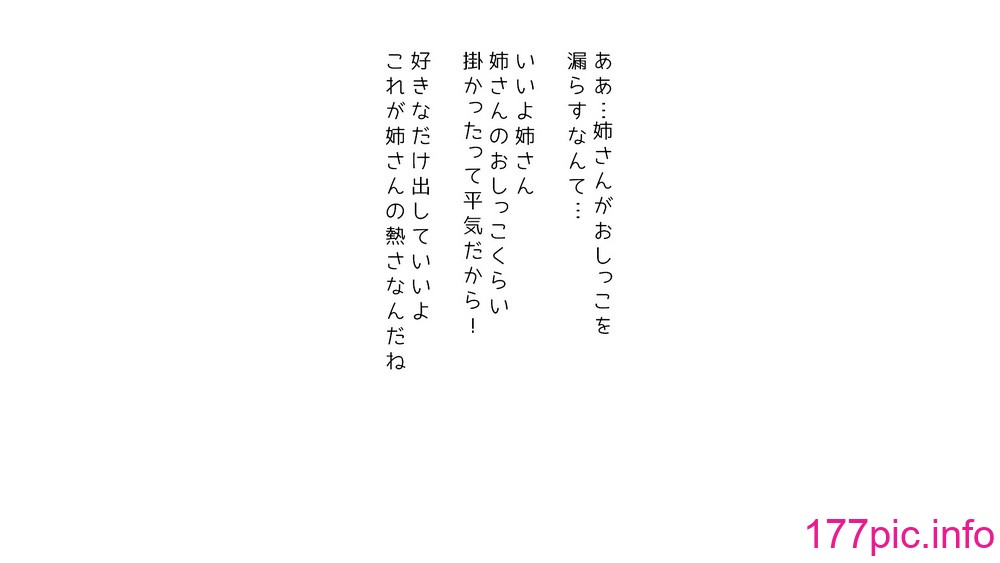 ああ…姉さんがおしっこを
漏らすなんて…
いいよ姉さん
姉さんのおしっこくらい
掛かったって平気だから！
好きなだけ出していいよ
これが姉さんの熱さなんだね
177pic.info